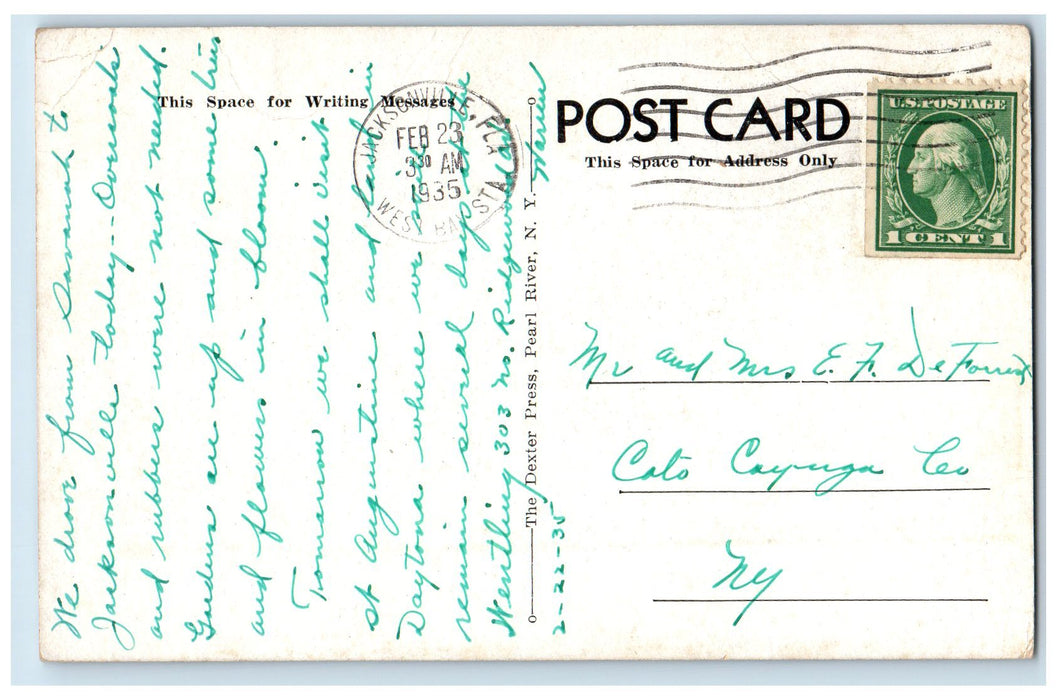 This Space for Writing Messages
We drove from Savannah to
Jacksonville today -- Overcoats
and rubbers were not needed.
Gardens are up and some trees
and flowers in bloom.
Tomorrow we shall visit
St Augustine and land in
Daytona where we may
remain several days at the
Wentling 303 No. Ridgewood
Warren
2-22-35
The Dexter Press, Pearl River, N. Y.
JACKSONVILLE, FLA
FEB 23
3 30 AM
1935
WEST BAY STA.
POST CARD
This Space for Address Only
U.S. POSTAGE
1 CENT 1
Mr and Mrs E. F. DeForrest
Cato Cayuga Co
NY